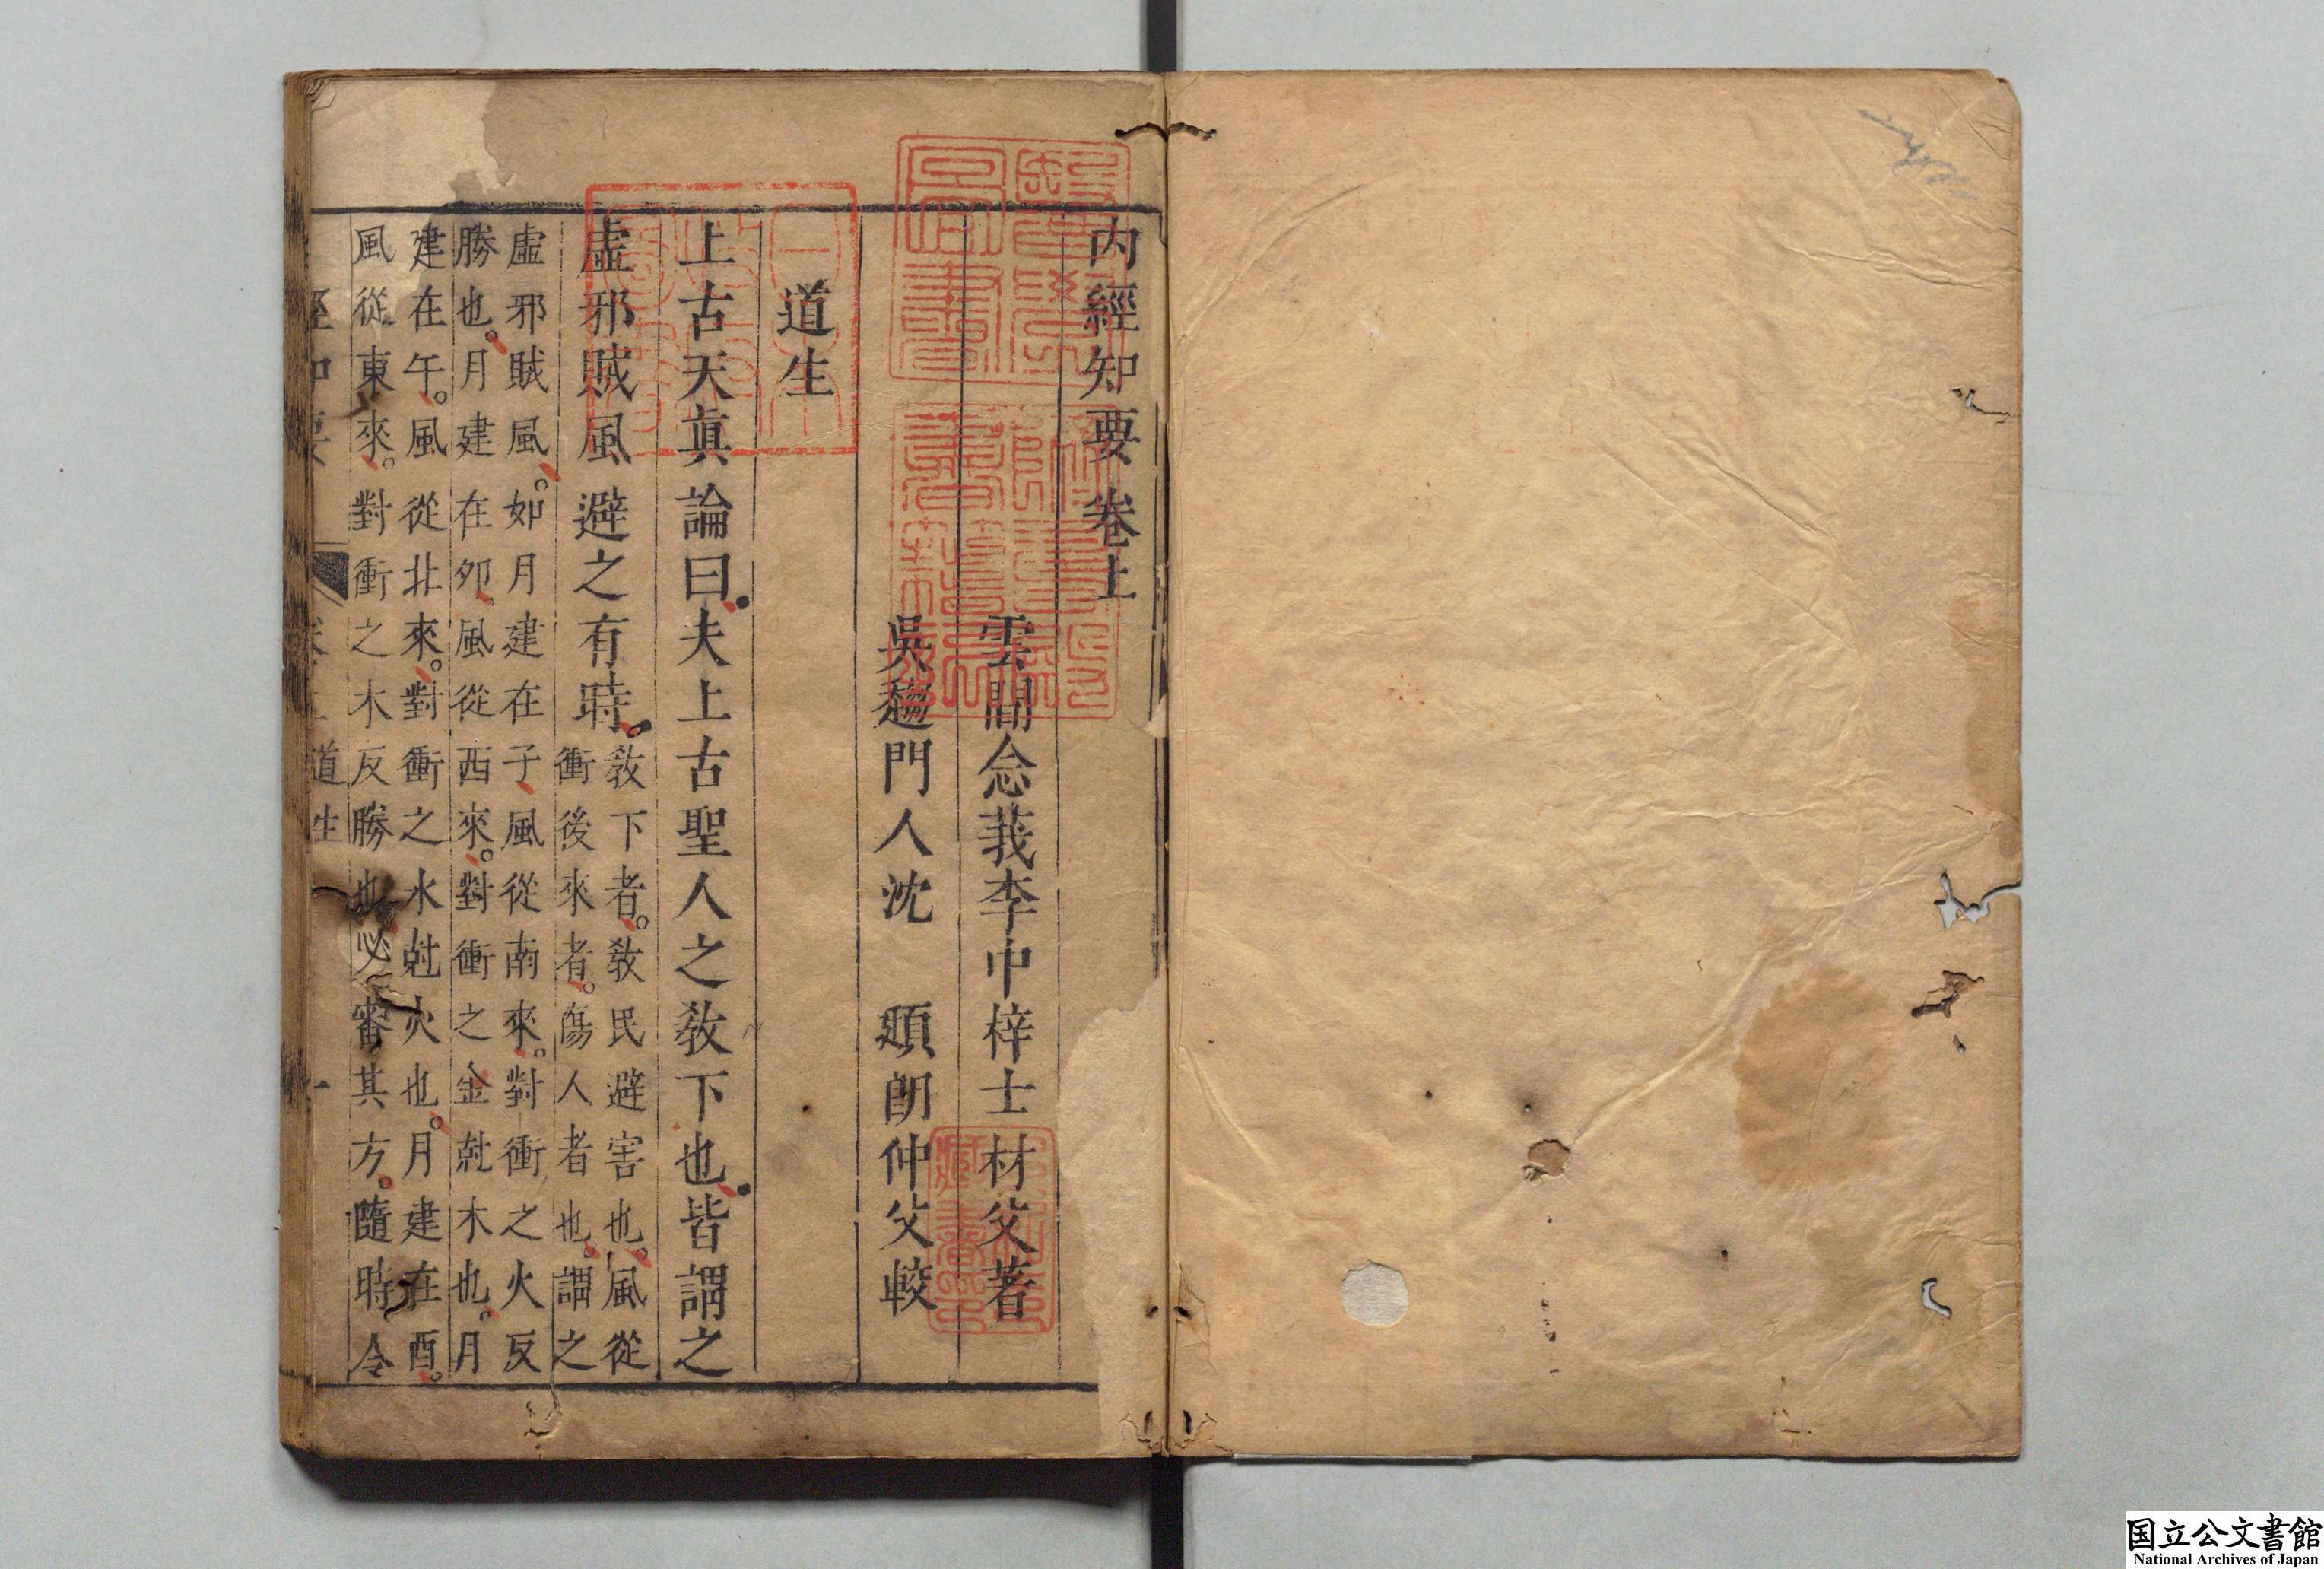 內經知要卷上
雲間念莪李中梓士材父著
吳趨門人沈　頲朗仲父較
道生
上古天眞論曰夫上古聖人之敎下也皆謂之
虛邪賊風避之有時敎下者敎民避害也風從
衝後來者傷人者也謂之
虛邪賊風如月建在子風從南來對衝之火反
勝也月建在卯風從西來對衝之金尅木也月
建在午風從北來對衝之水尅火也月建在酉
風從東來對衝之木反勝也必審其方隨時令
道生
一
国立公文書館
National Archives of Japan